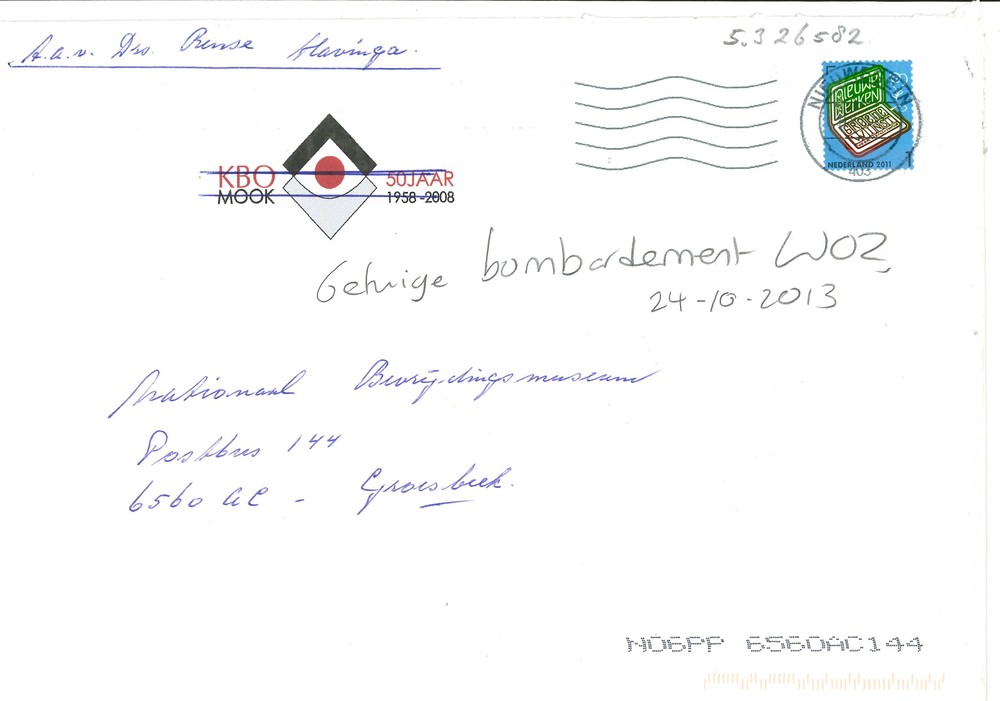 A.a.v. Drs. Rense Havinga.
5.326582
NIEUWEGEIN
nieuwe werken
NEDERLAND 2011
1
403
KBO 50 JAAR
MOOK 1958-2008
Getuige bombardement WO2
24-10-2013
Nationaal Bevrijdingsmuseum
Postbus 144
6560 AC - Groesbeek.
NO6PP 6560AC144